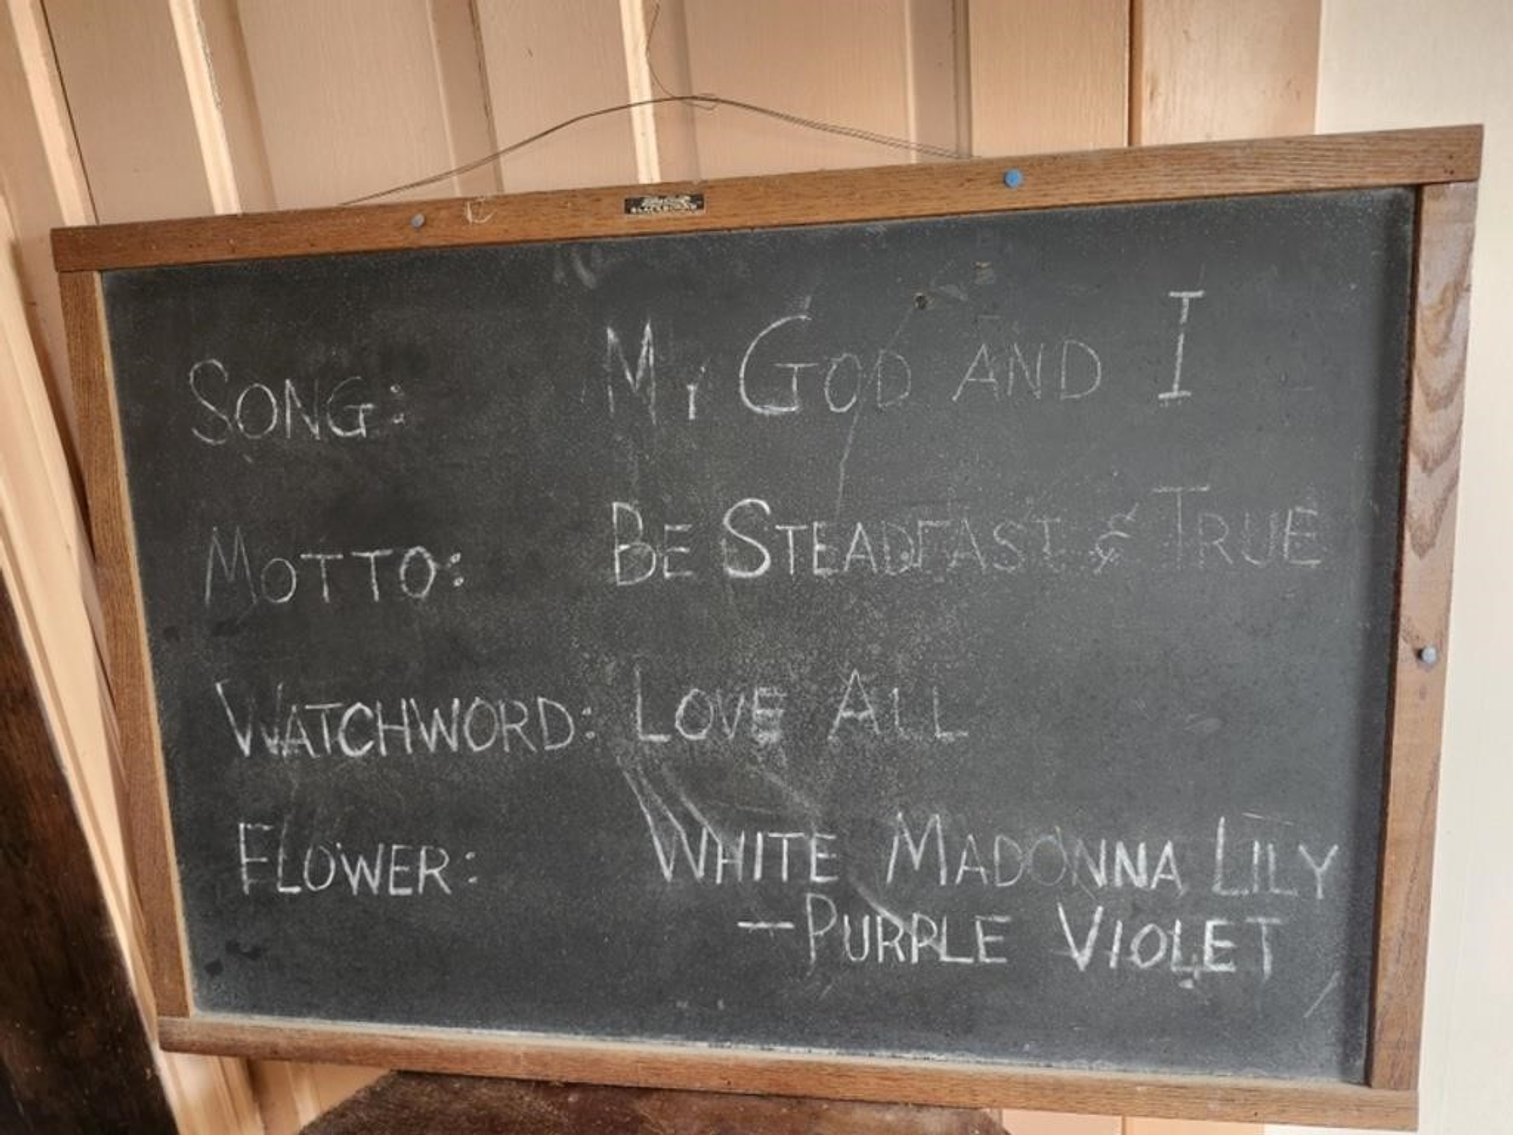 SONG: MY GOD AND I
MOTTO: BE STEADFAST & TRUE
WATCHWORD: LOVE ALL
FLOWER: WHITE MADONNA LILY
- PURPLE VIOLET